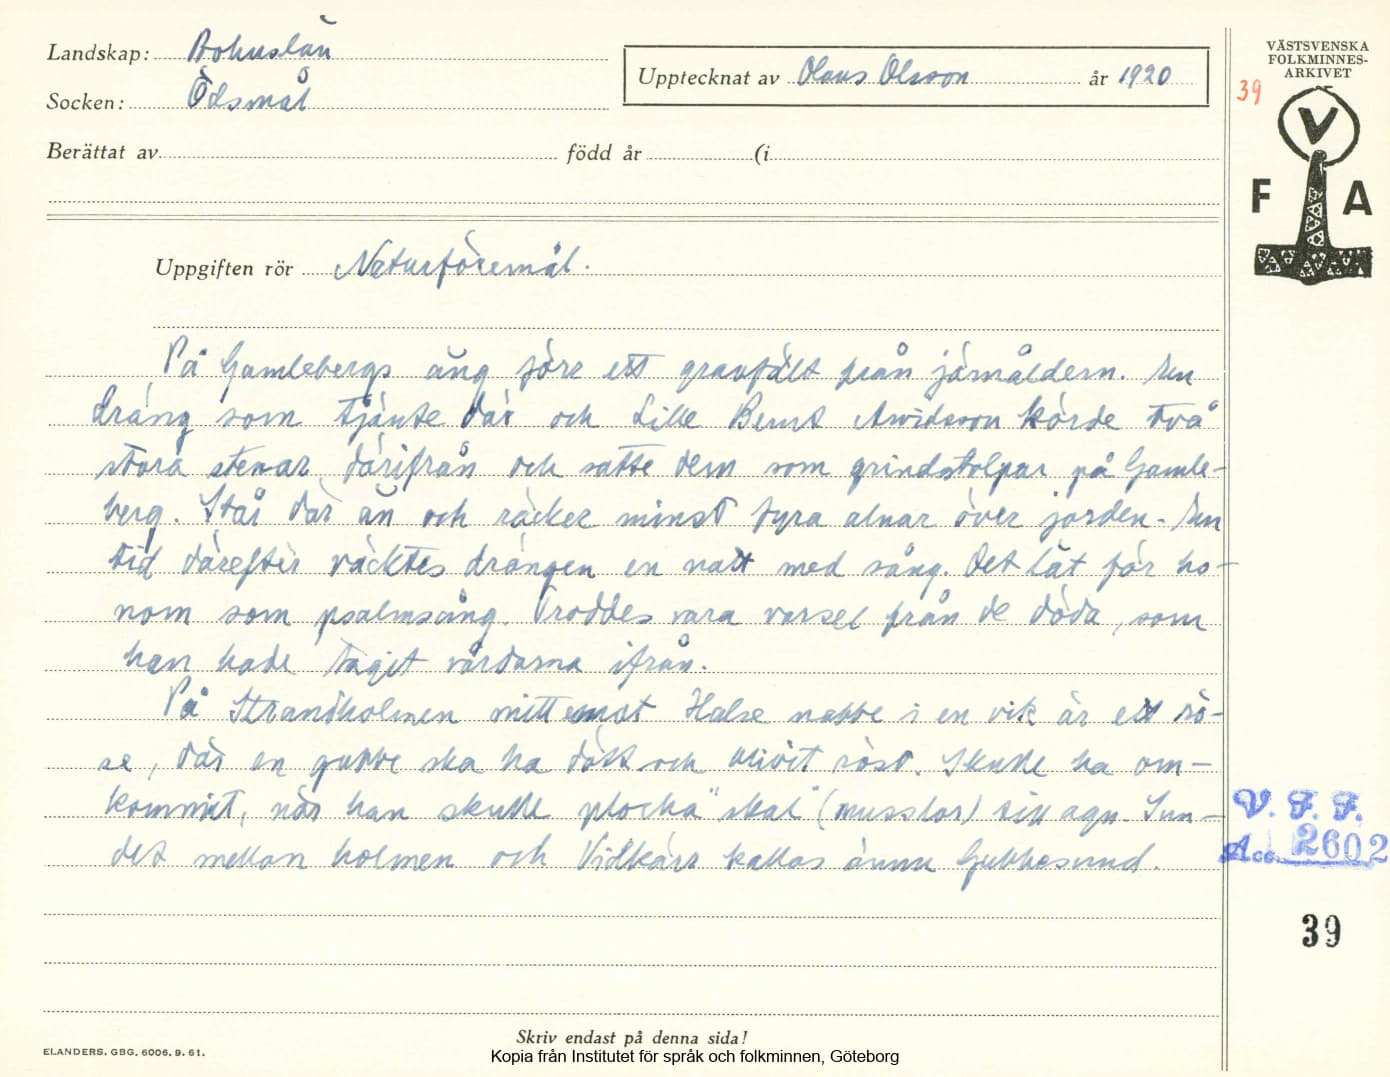 Landskap: Bohuslän
Socken: Ödsmål
Upptecknat av Olaus Olsson år 1920
Berättat av född år (i
VÄSTSVENSKA
FOLKMINNES-
ARKIVET
39
V
F A
Uppgiften rör Naturföremål.
På Gamlebergs äng före ett gravfält från järnåldern. En
dräng som tjänte där och Lille Bernt Arvidsson körde två
stora stenar därifrån och satte dem som grindstolpar på Gamle-
berg. Står där än och räcker minst fyra alnar över jorden. En
tid därefter väcktes drängen en natt med sång. Det lät för ho-
nom som psalmsång. Troddes vara varsel från de döda, som
han hade tagit vårdarna ifrån.
På Strandholmen mittemot Halse nabbe i en vik är ett rö-
se, där en gubbe ska ha dött och blivit röst. Skulle ha om-
kommit, när han skulle plocka "skal" (musslor) till agn. Sun-
det mellan holmen och Vidkärr kallas ännu Gubbesund.
V. F. F.
Acc. 2602
39
Skriv endast på denna sida!
ELANDERS. GBG. 6006. 9. 61.
Kopia från Institutet för språk och folkminnen, Göteborg